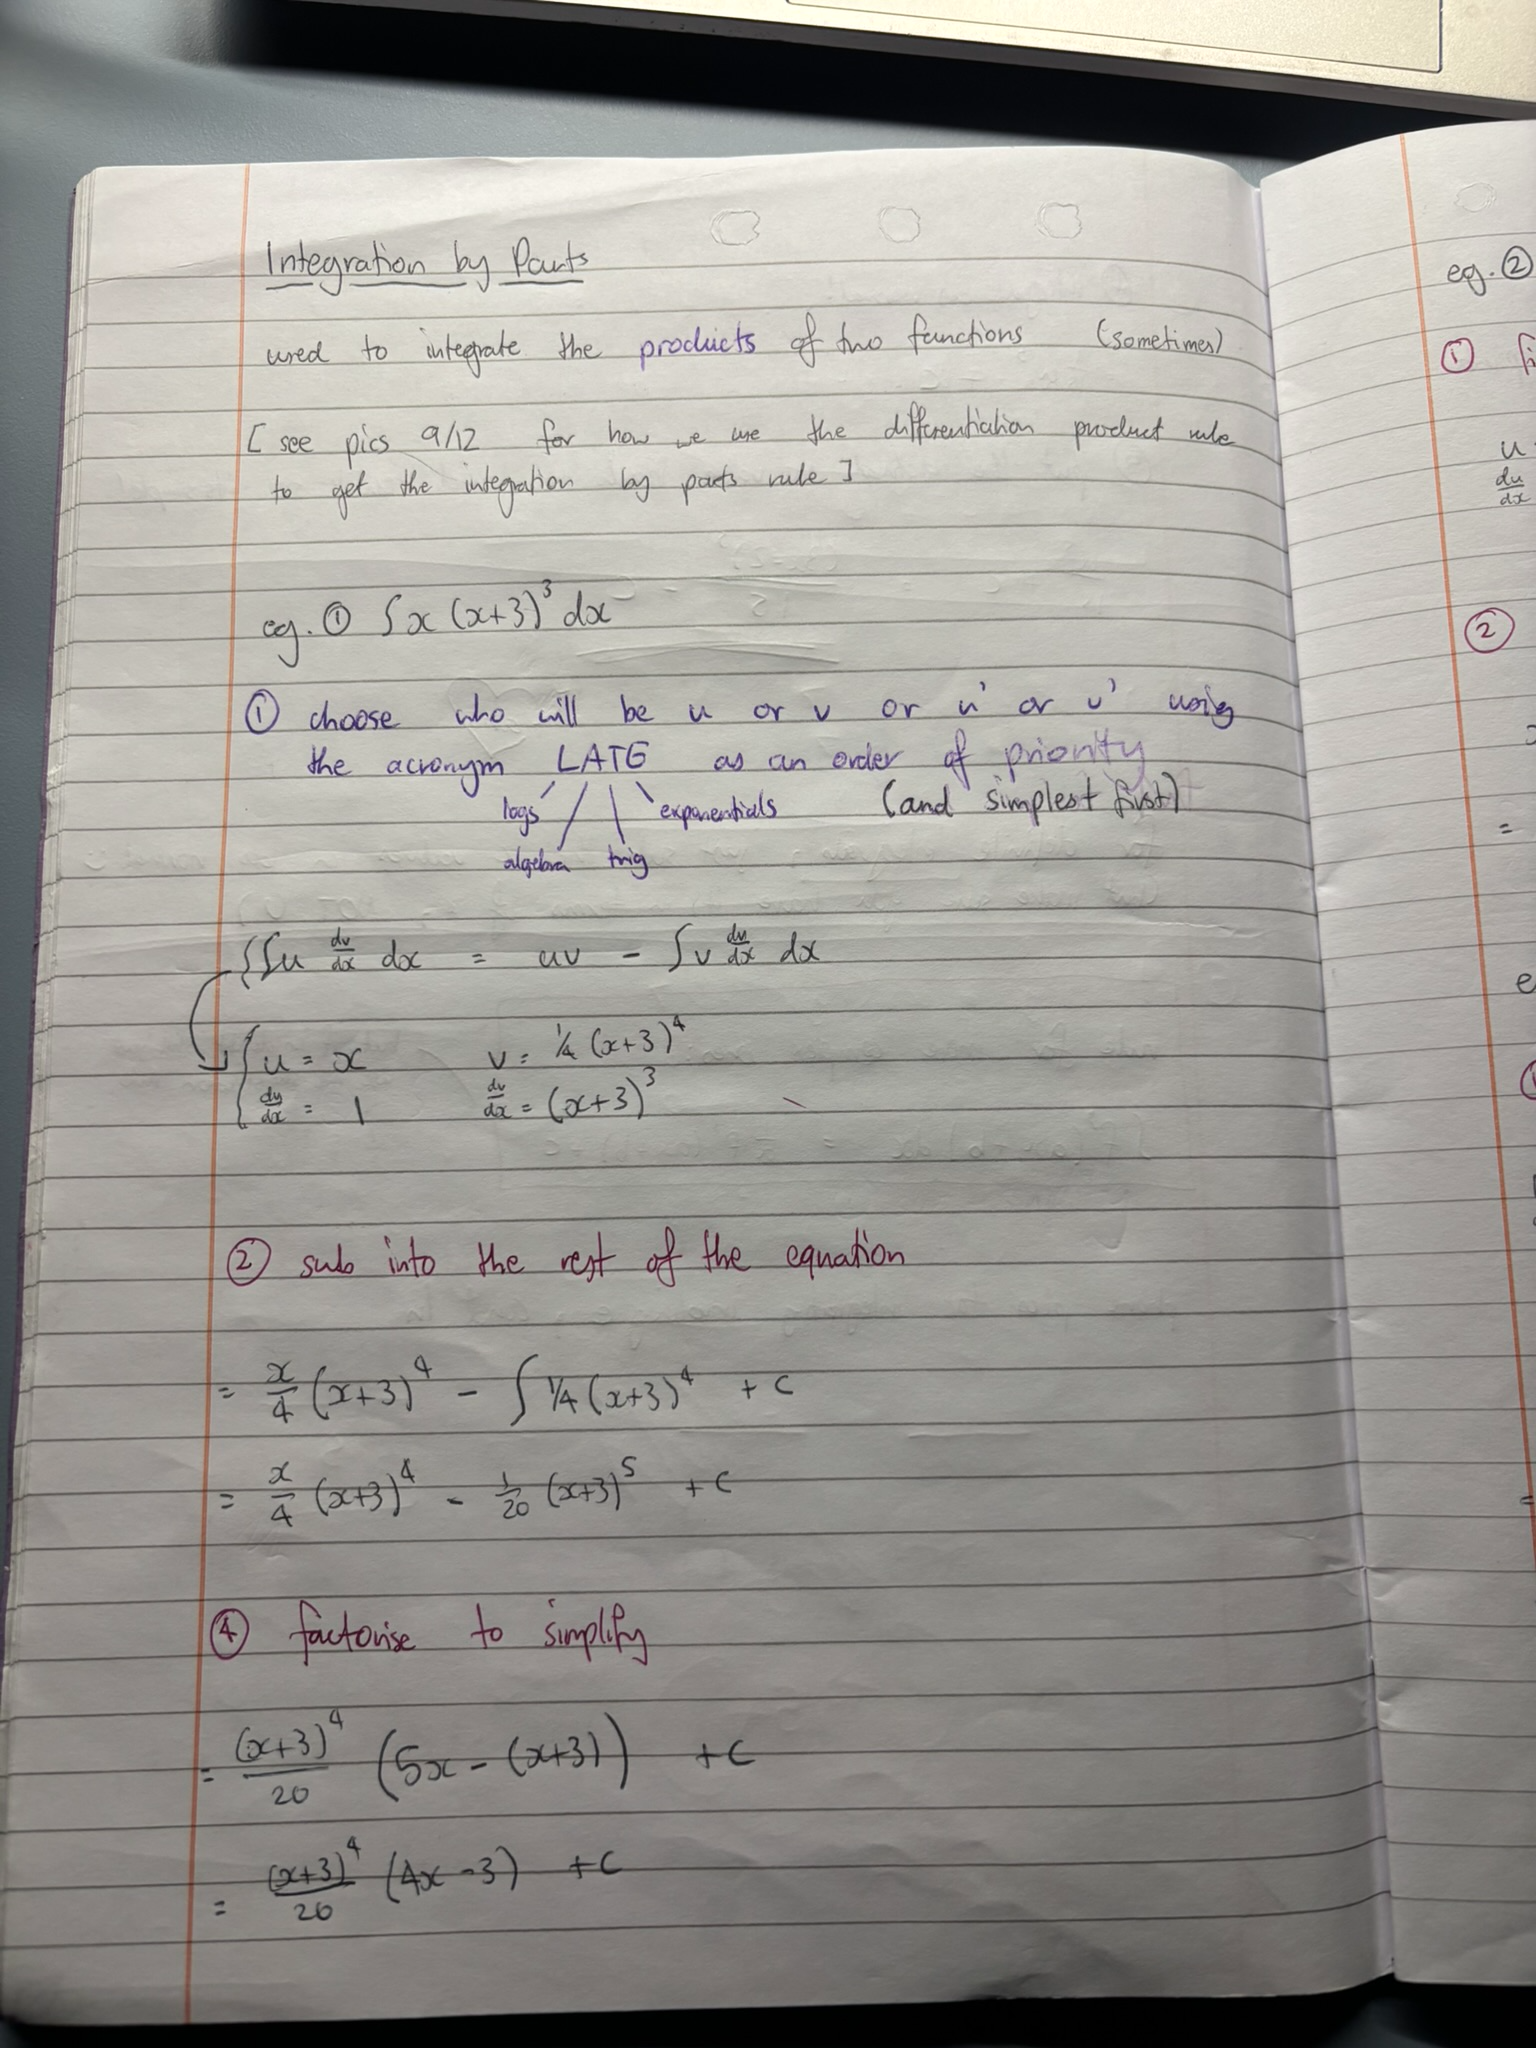 Integration by Parts
used to integrate the products of two functions (sometimes)
[ see pics 9/12 for how we use the differentiation product rule
to get the integration by parts rule ]
eg. ① ∫x (x+3)³ dx
① choose who will be u or v or u' or v' using
the acronym LATE as an order of priority
logs exponentials (and simplest first)
algebra trig
∫u dv/dx dx = uv - ∫v du/dx dx
u = x v = 1/4 (x+3)⁴
du/dx = 1 dv/dx = (x+3)³
② sub into the rest of the equation
= x/4 (x+3)⁴ - ∫ 1/4 (x+3)⁴ + c
= x/4 (x+3)⁴ - 1/20 (x+3)⁵ + c
④ factorise to simplify
= (x+3)⁴/20 (5x - (x+3)) + c
= (x+3)⁴/20 (4x - 3) + c
eg. ②
①
u
du/dx
②
=